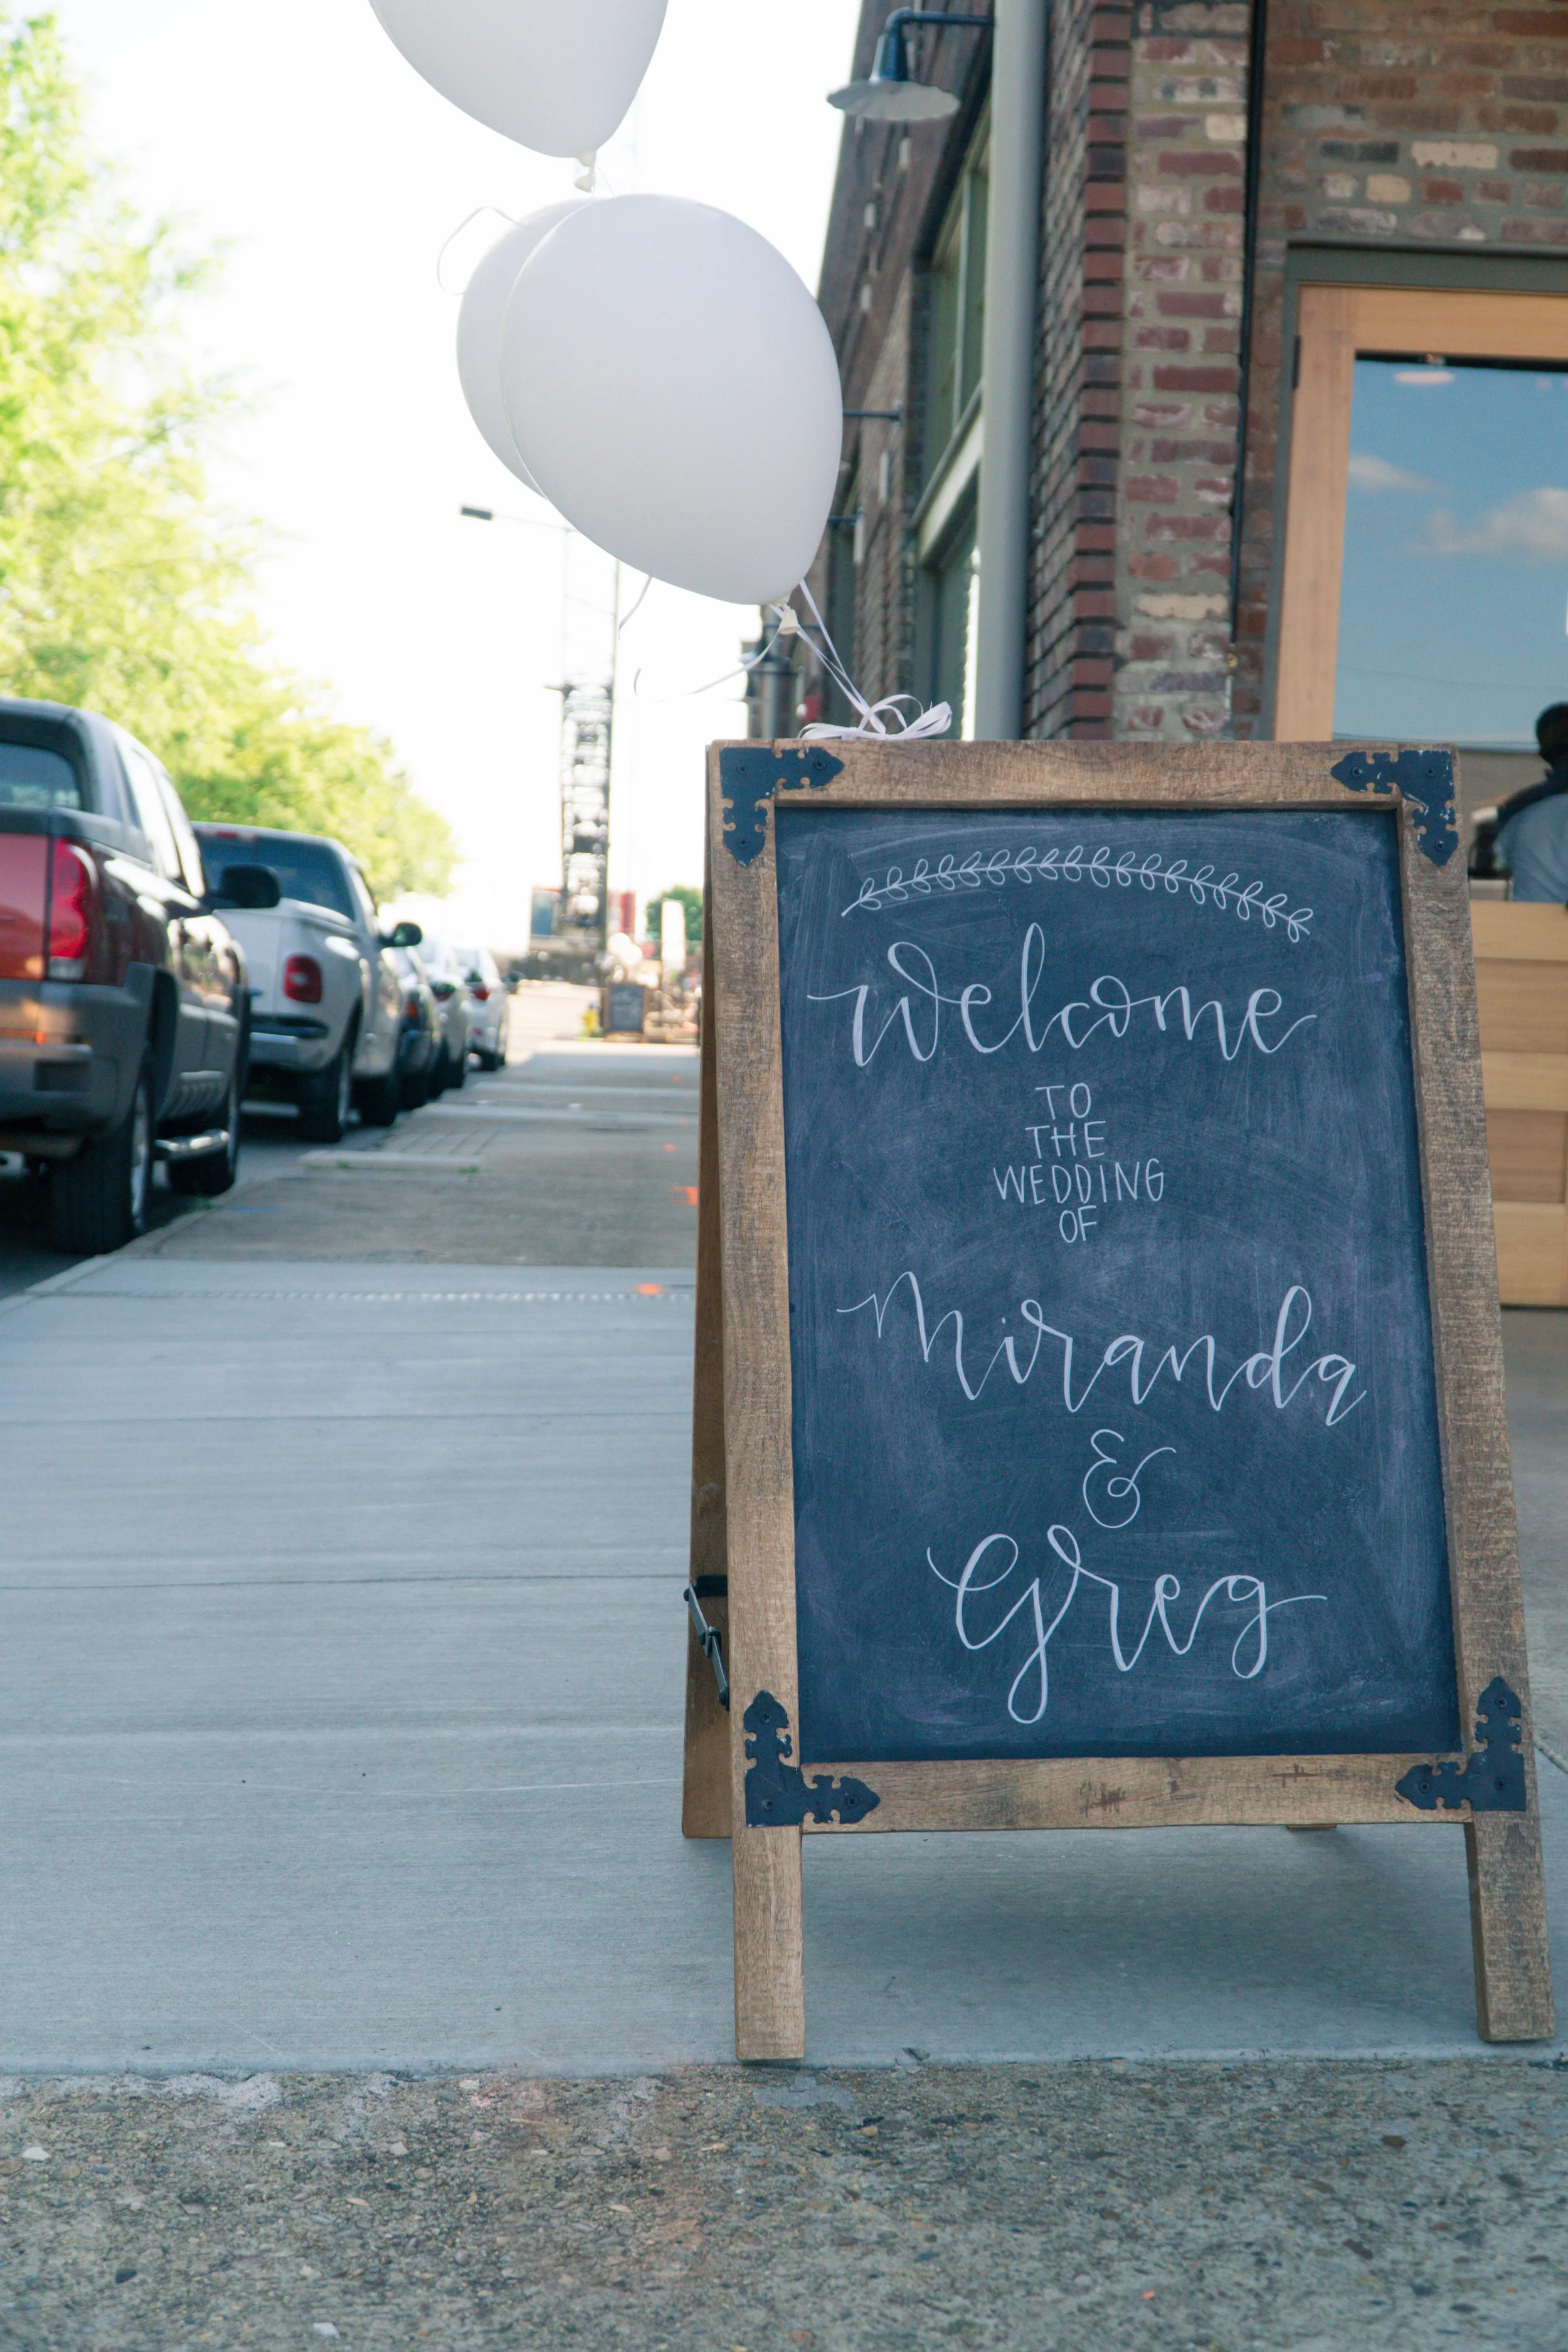 Welcome
TO
THE
WEDDING
OF
Miranda
&
Greg